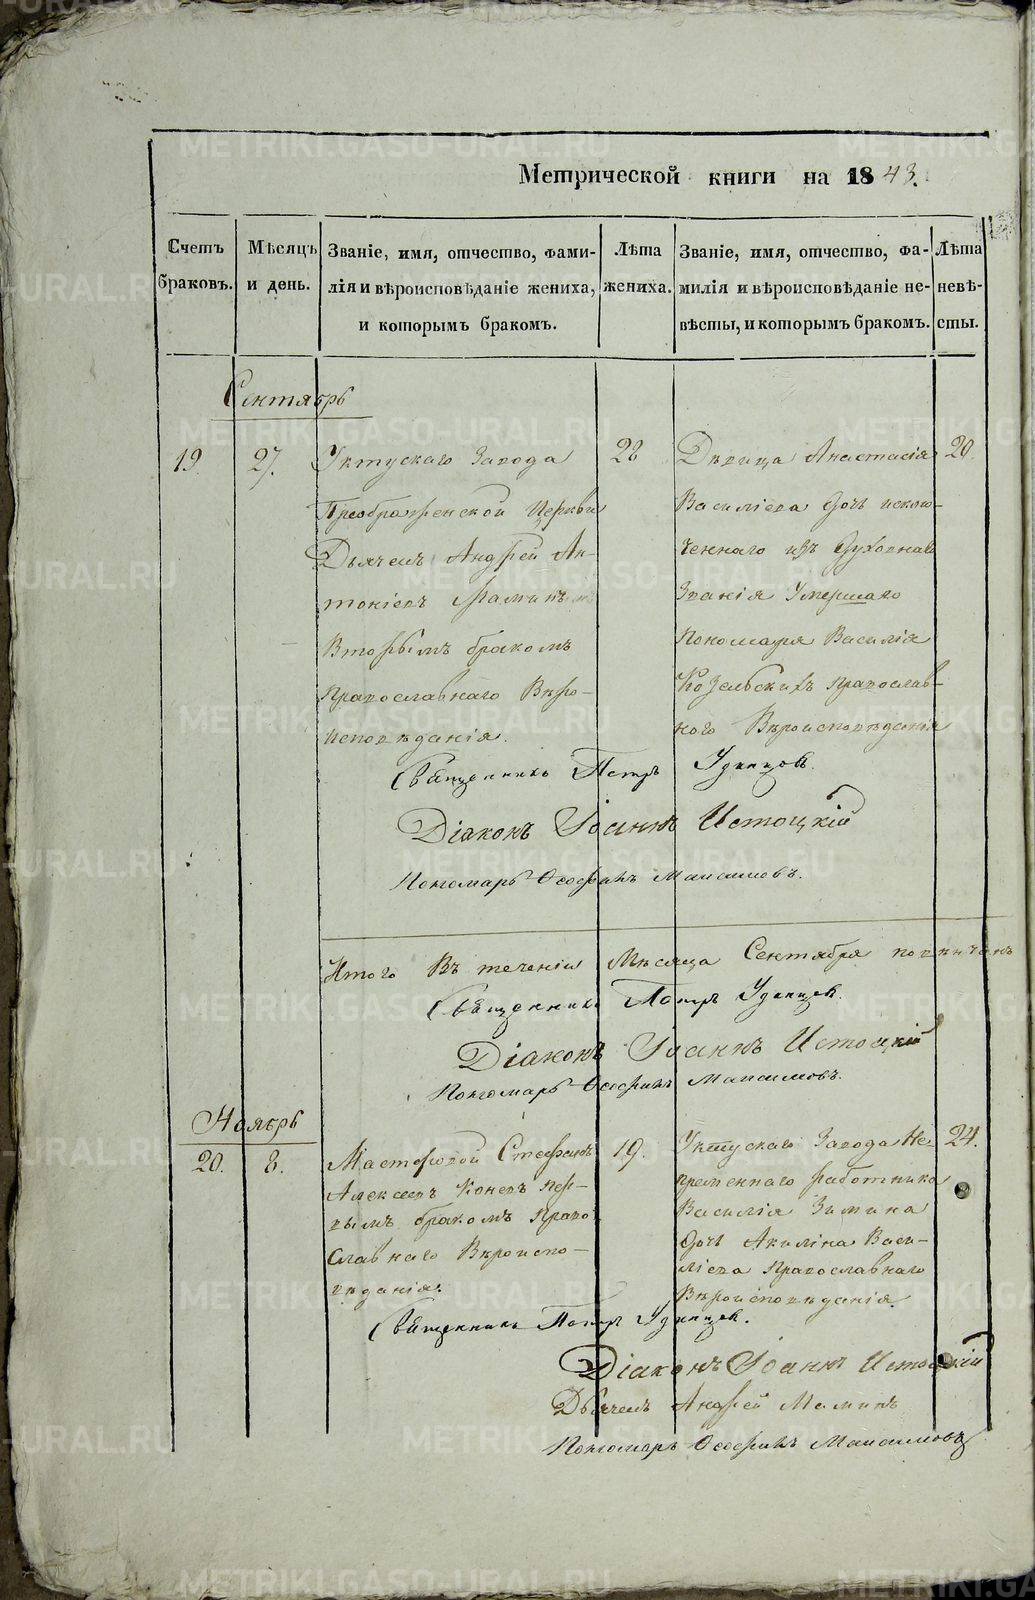 Метрической книги на 1843.
Счетъ браковъ.
Мѣсяцъ и день.
Званіе, имя, отчество, фами-
лія и вѣроисповѣданіе жениха,
и которымъ бракомъ.
Лѣта жениха.
Званіе, имя, отчество, фа-
милія и вѣроисповѣданіе не-
вѣсты, и которымъ бракомъ.
Лѣта невѣ-
сты.
Сентябрь
19. 27.
Уктускаго Завода
Преображенской Церкви
Дьячекъ Андрей Ан-
тоніевъ Маминъ
Вторымъ бракомъ
Православнаго Вѣро-
исповѣданія.
28
Дѣвица Анастасія
Василіева дочь исклю-
ченнаго изъ Духовнаго
Званія Умершаго
Пономаря Василія
Козельскихъ Православ-
наго Вѣроисповѣданія
20.
Священникъ Петръ Удинцов.
Діаконъ Іоаннъ Истоцкій
Пономарь Ѳеофилъ Максимовъ.
Итого Въ теченіи Мѣсяца Сентября повѣнчанъ
Священникъ Петръ Удинцев.
Діаконъ Іоаннъ Истоцкій
Пономарь Ѳеофилъ Максимовъ.
Ноябрь
20. 8.
Мастеровой Стефанъ
Алексеевъ Коневъ пер-
вымъ бракомъ Право-
славнаго Вѣроиспо-
вѣданія.
19.
Уктускаго Завода Не-
премѣннаго работника
Василія Зимина
дочь Акилина Васи-
ліева Православнаго
Вѣроисповѣданія.
24.
Священникъ Петръ Удинцев.
Діаконъ Іоаннъ Истоцкій
Дьячекъ Андрей Маминъ
Пономарь Ѳеофилъ Максимовъ
METRIKI.GASO-URAL.RU